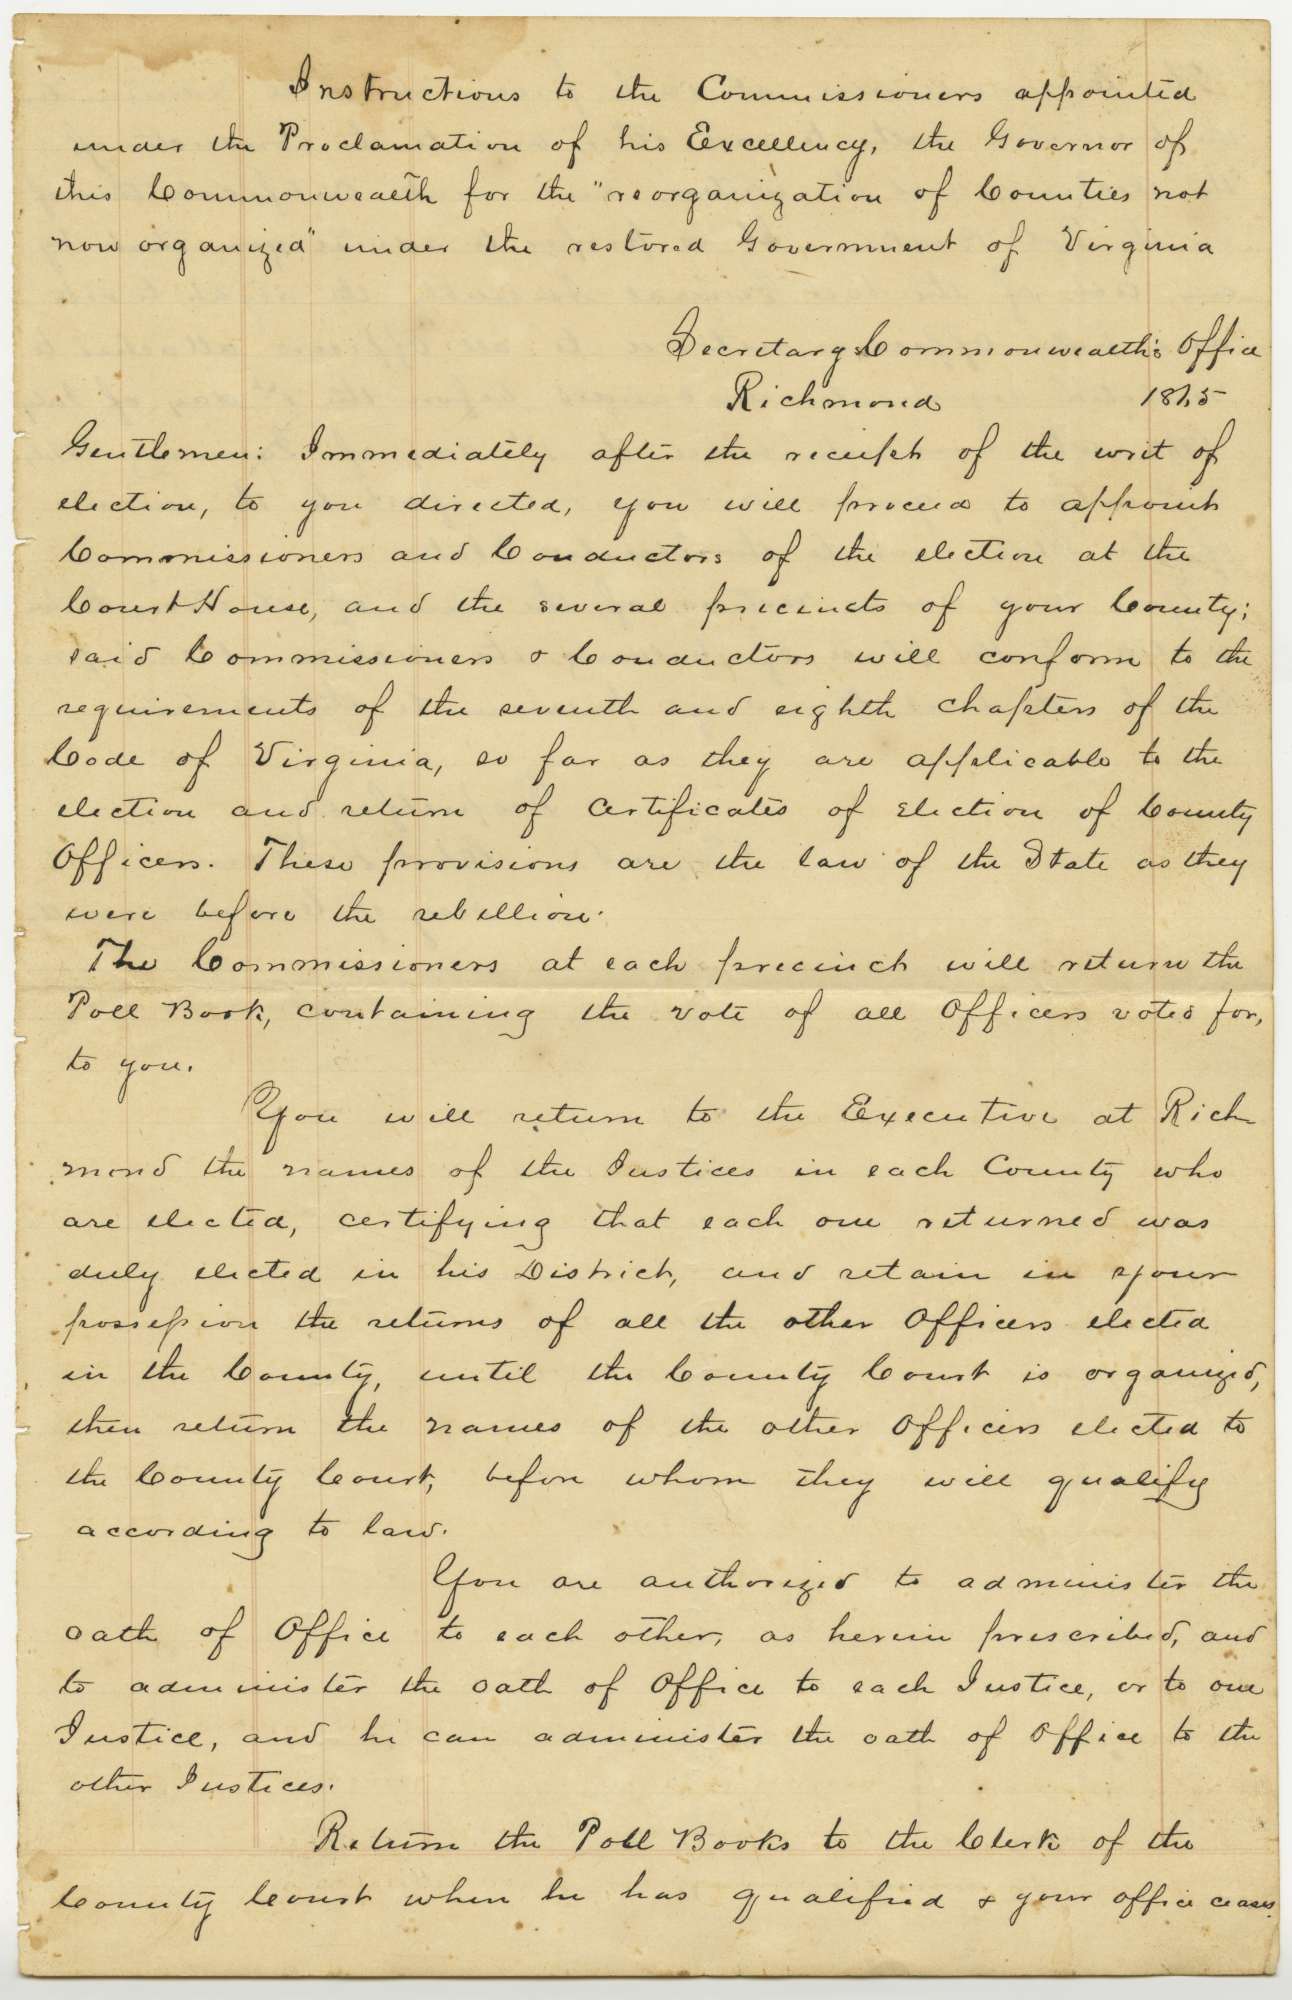 Instructions to the Commissioners appointed
under the Proclamation of his Excellency, the Governor of
this Commonwealth for the "reorganization of Counties not
now organized" under the restored Government of Virginia
Secretary Commonwealth's Office
Richmond 1865
Gentlemen: Immediately after the receipt of the writ of
election, to you directed, you will proceed to appoint
Commissioners and Conductors of the election at the
Court House, and the several precincts of your County;
said Commissioners & Conductors will conform to the
requirements of the seventh and eighth chapters of the
Code of Virginia, so far as they are applicable to the
election and return of certificates of election of County
Officers. These provisions are the law of the State as they
were before the rebellion.
The Commissioners at each precinct will return the
Poll Book, containing the vote of all Officers voted for,
to you.
You will return to the Executive at Rich
mond the names of the Justices in each County who
are elected, certifying that each one returned was
duly elected in his District, and retain in your
possession the returns of all the other Officers elected
in the County, until the County Court is organized,
then return the names of the other Officers elected to
the County Court, before whom they will qualify
according to law.
You are authorized to administer the
oath of Office to each other, as herein prescribed, and
to administer the oath of Office to each Justice, or to one
Justice, and he can administer the oath of Office to the
other Justices.
Return the Poll Books to the Clerk of the
County Court when he has qualified & your office ceases.